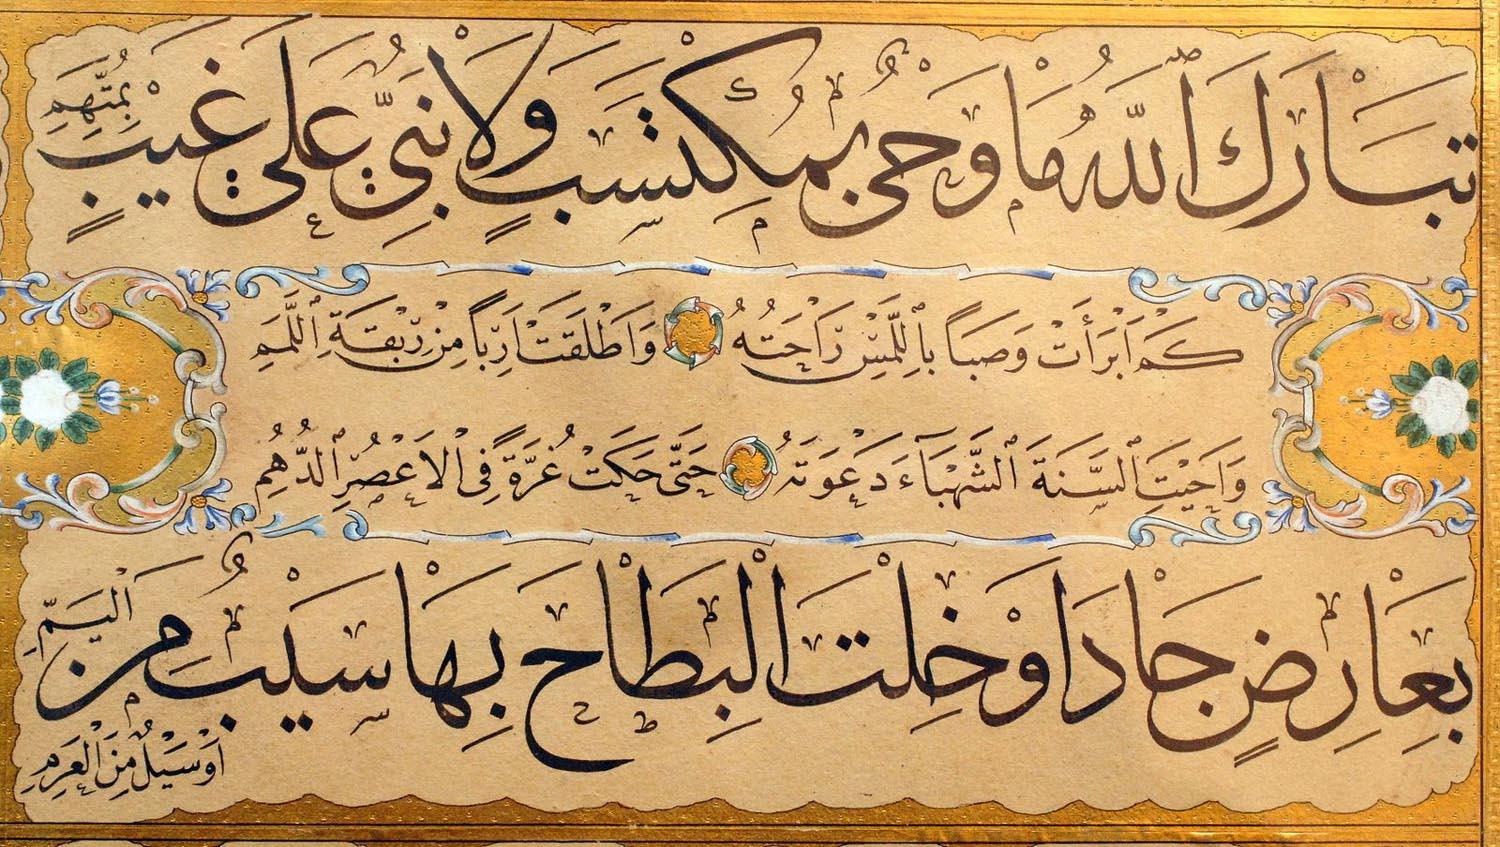 تَبَارَكَ ٱللّٰهُ مَا وَحْىٌ بِمُكْتَسَبٍ وَلَا نَبِىٌّ عَلَى غَيْبٍ بِمُتَّهَمِ
كَمْ اَبْرَأَتْ وَصِبًا بِاللَّمْسِ رَاحَتُهُ وَاَطْلَقَتْ اَرِبًا مِنْ رِبْقَةِ اللَّمَمِ
وَاَحْيَتِ ٱلسَّنَةَ ٱلشَّهْبَاءَ دَعْوَتُهُ حَتَّى حَكَتْ غُرَّةً فِى الْاَعْصُرِ ٱلدُّهُمِ
بِعَارِضٍ جَادَ اَوْ خِلْتَ الْبِطَاحَ بِهَا سَيْبٌ مِنَ الْيَمِّ
اَوْ سَيْلٌ مِنَ الْعَرِمِ